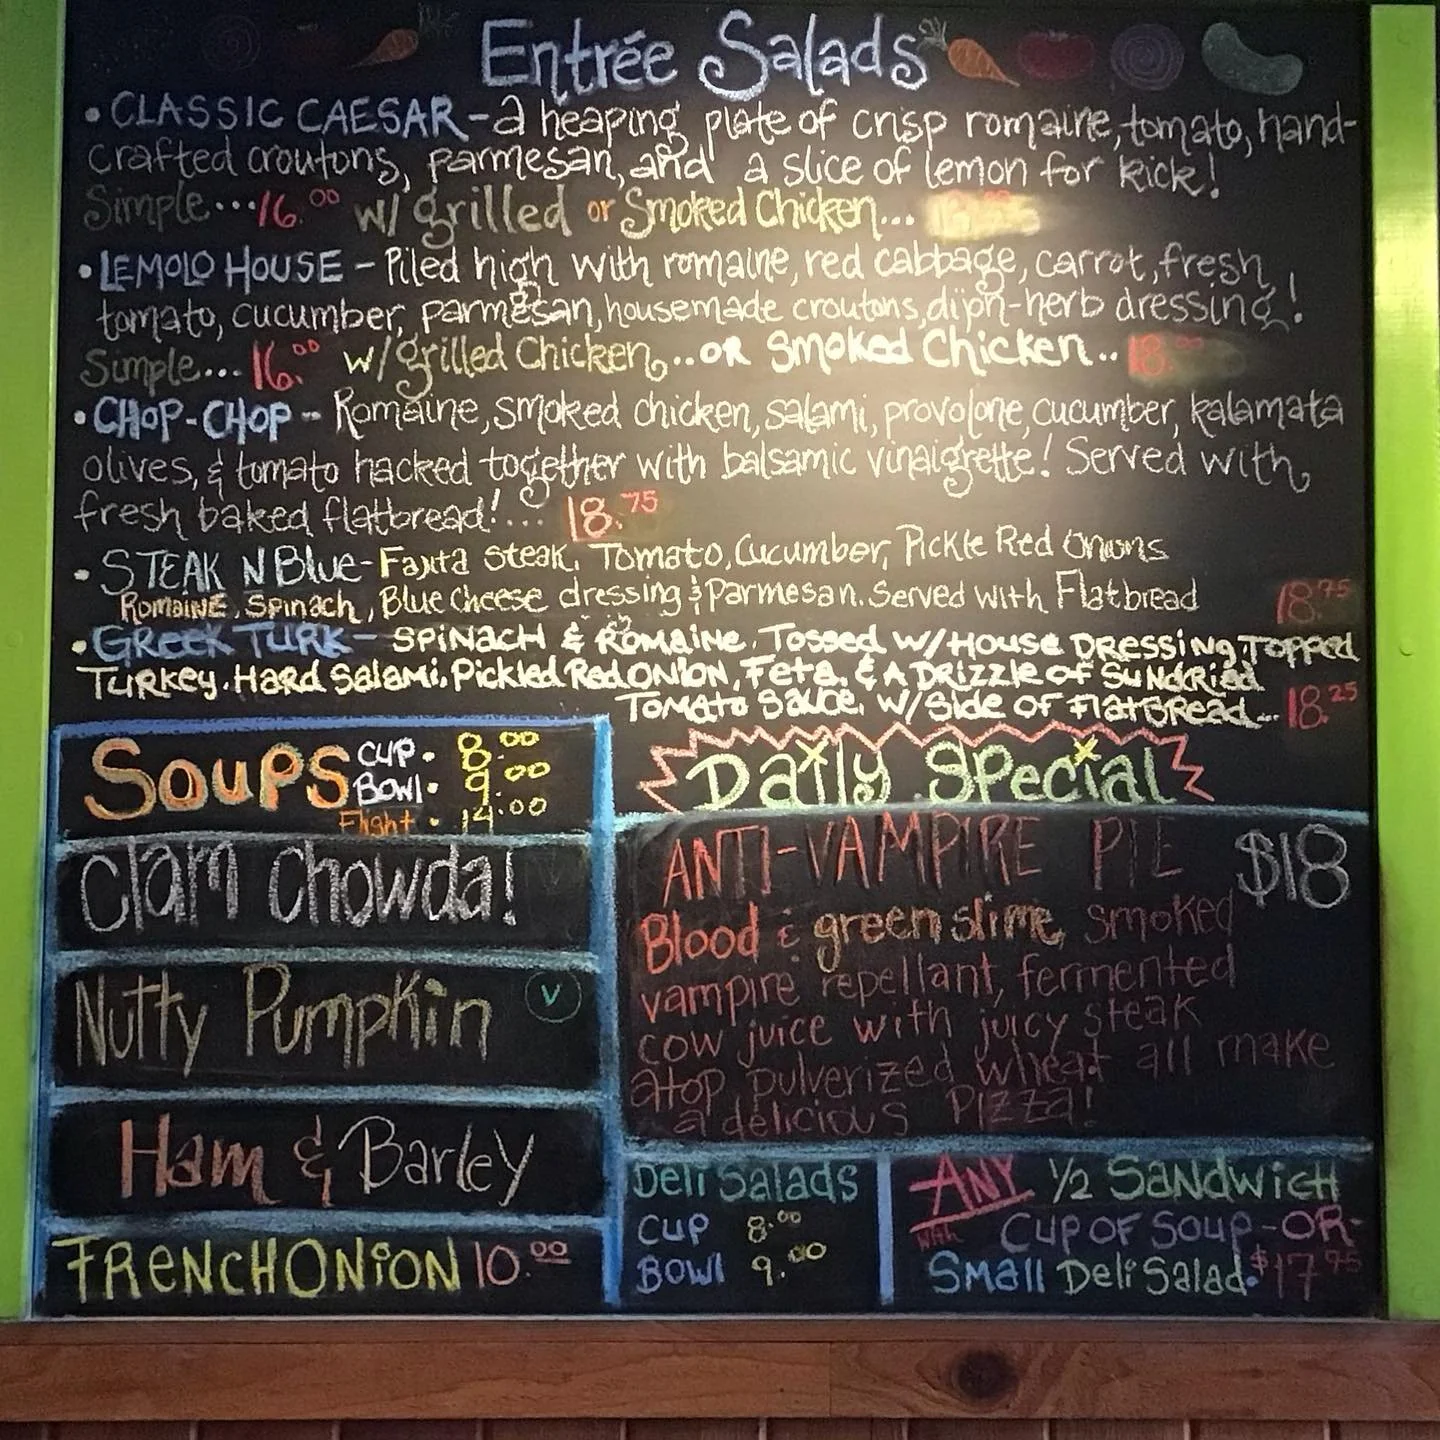 Entrée Salads
• CLASSIC CAESAR - a heaping plate of crisp romaine, tomato, hand-
crafted croutons, parmesan, and a slice of lemon for kick!
Simple... 16.00 w/ grilled or Smoked Chicken...
• LEMOLO HOUSE - Piled high with romaine, red cabbage, carrot, fresh
tomato, cucumber, parmesan, housemade croutons, dijon-herb dressing!
Simple... 16.00 w/ grilled Chicken... OR Smoked Chicken.. 18.00
• CHOP-CHOP - Romaine, smoked chicken, salami, provolone, cucumber, kalamata
olives, & tomato hacked together with balsamic vinaigrette! Served with
fresh baked flatbread!... 18.75
• STEAK N Blue - Fajita steak, Tomato, Cucumber, Pickle Red Onions
Romaine, Spinach, Blue Cheese dressing & Parmesan. Served with Flatbread 18.75
• GREEK TURK - SPINACH & ROMAINE, Tossed W/ House DRESSING, Topped
Turkey, Hard Salami, Pickled Red ONION, Feta, & A DRizzle of SuNdRied
Tomato Sauce, W/ Side OF FlatBRead... 18.25
Soups CUP. 8.00
Bowl. 9.00
Flight . 14.00
Clam Chowda!
Nutty Pumpkin V
Ham & Barley
FRENCH ONiON 10.00
Daily Special
ANTI-VAMPIRE PIE $18
Blood & green slime, smoked
vampire repellant, fermented
cow juice with juicy steak
atop pulverized wheat all make
a delicious PIZZA!
Deli Salads
CUP 8.00
BOWl 9.00
ANY 1/2 SANDWICH
With CUP OF SOUP -OR-
Small Deli Salad. $17.95